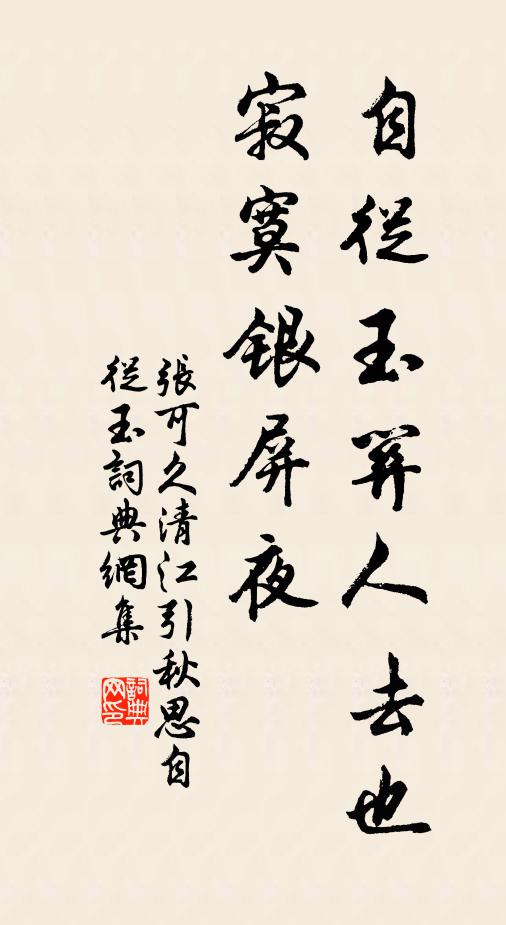 自從玉關人去也
寂寞銀屏夜
張可久清江引秋思自
從玉詞典網集
詞典
网印